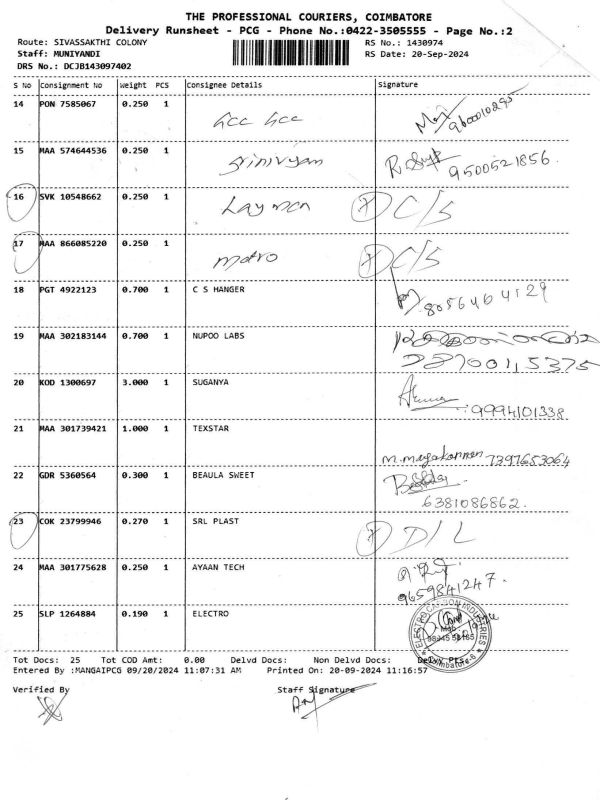 THE PROFESSIONAL COURIERS, COIMBATORE
Delivery Runsheet - PCG - Phone No.:0422-3505555 - Page No.:2
Route: SIVASSAKTHI COLONY RS No.: 1430974
Staff: MUNIYANDI RS Date: 20-Sep-2024
DRS No.: DCJB143097402
S No Consignment No Weight PCS Consignee Details Signature
14 PON 7585067 0.250 1
15 MAA 574644536 0.250 1 9500521856.
16 SVK 10548662 0.250 1 Laymen C/S
17 MAA 866085220 0.250 1 metro C/S
18 PGT 4922123 0.700 1 C S HANGER
19 MAA 302183144 0.700 1 NUPOO LABS
20 KOD 1300697 3.000 1 SUGANYA 9994101338
21 MAA 301739421 1.000 1 TEXSTAR 7397653064
22 GDR 5360564 0.300 1 BEAULA SWEET
6381086862.
23 COK 23799946 0.270 1 SRL PLAST D/L
24 MAA 301775628 0.250 1 AYAAN TECH
9659841247.
25 SLP 1264884 0.190 1 ELECTRO
Tot Docs: 25 Tot COD Amt: 0.00 Delvd Docs: Non Delvd Docs:
Entered By :MANGAIPCG 09/20/2024 11:07:31 AM Printed On: 20-09-2024 11:16:57
Verified By Staff Signature